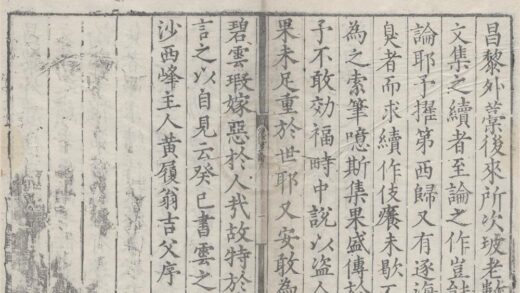 昌黎外藁後來所次坡老數
文集之續者至論之作豈
論耶予擢第西歸又有逐海
臭者而求續作伎癢未歇
為之索筆噫斯集果盛傳於
予不敢効福時中說以盗
果未足重於世耶又安敢為
碧雲瑕嫁惡於人㦲故特於
言之以自見云癸巳書雲之
沙西峰主人黃履翁吉父序